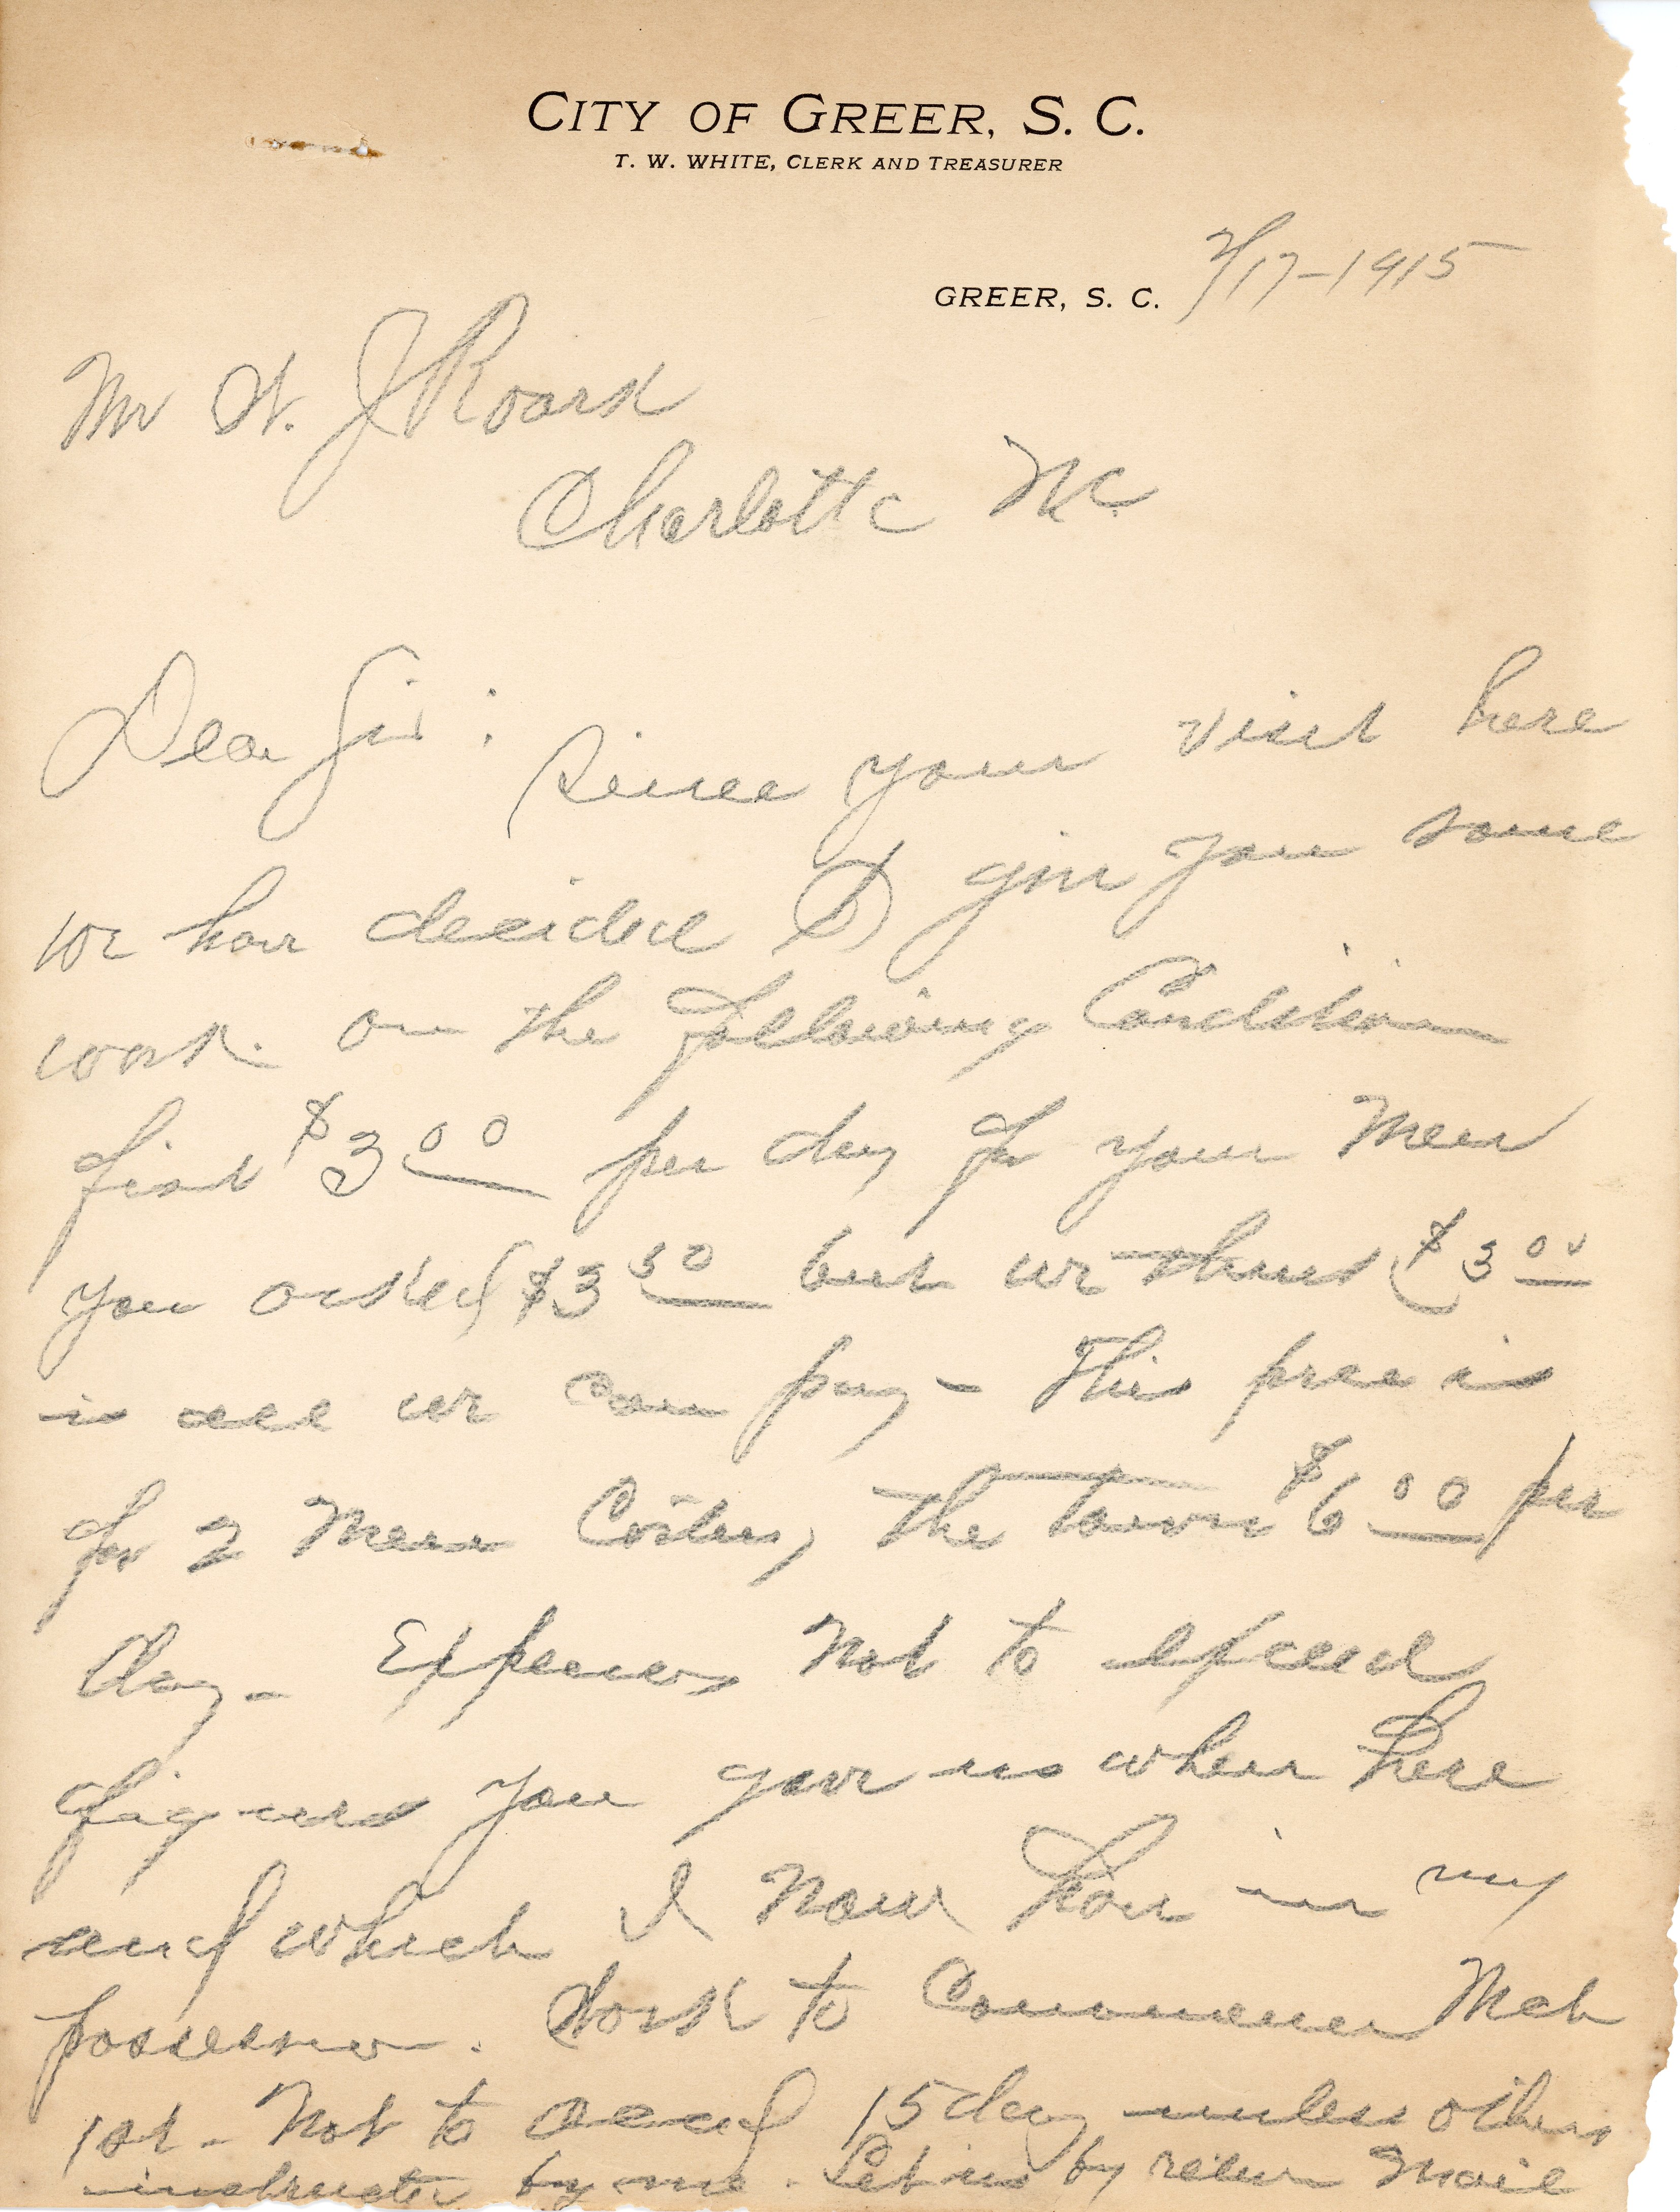 CITY OF GREER, S. C.
T. W. WHITE, CLERK AND TREASURER
GREER, S. C. 2/17-1915
Mr W. J Roark
Charlotte NC
Dear Sir : Since your visit here
we have decided to give you some
work. on the following Condition
first $3.00 per day for your Men
you asked $3.50 but we think $3.00
is all we can pay - This price is
for 2 Men Costing the town $6.00 per
day - Expenses Not to exceed
figures you gave us when here
and which I Now have in my
possession. Work to Commence Mch
1st - Not to exceed 15 day unless others
instructed by me. Let us by return Mail